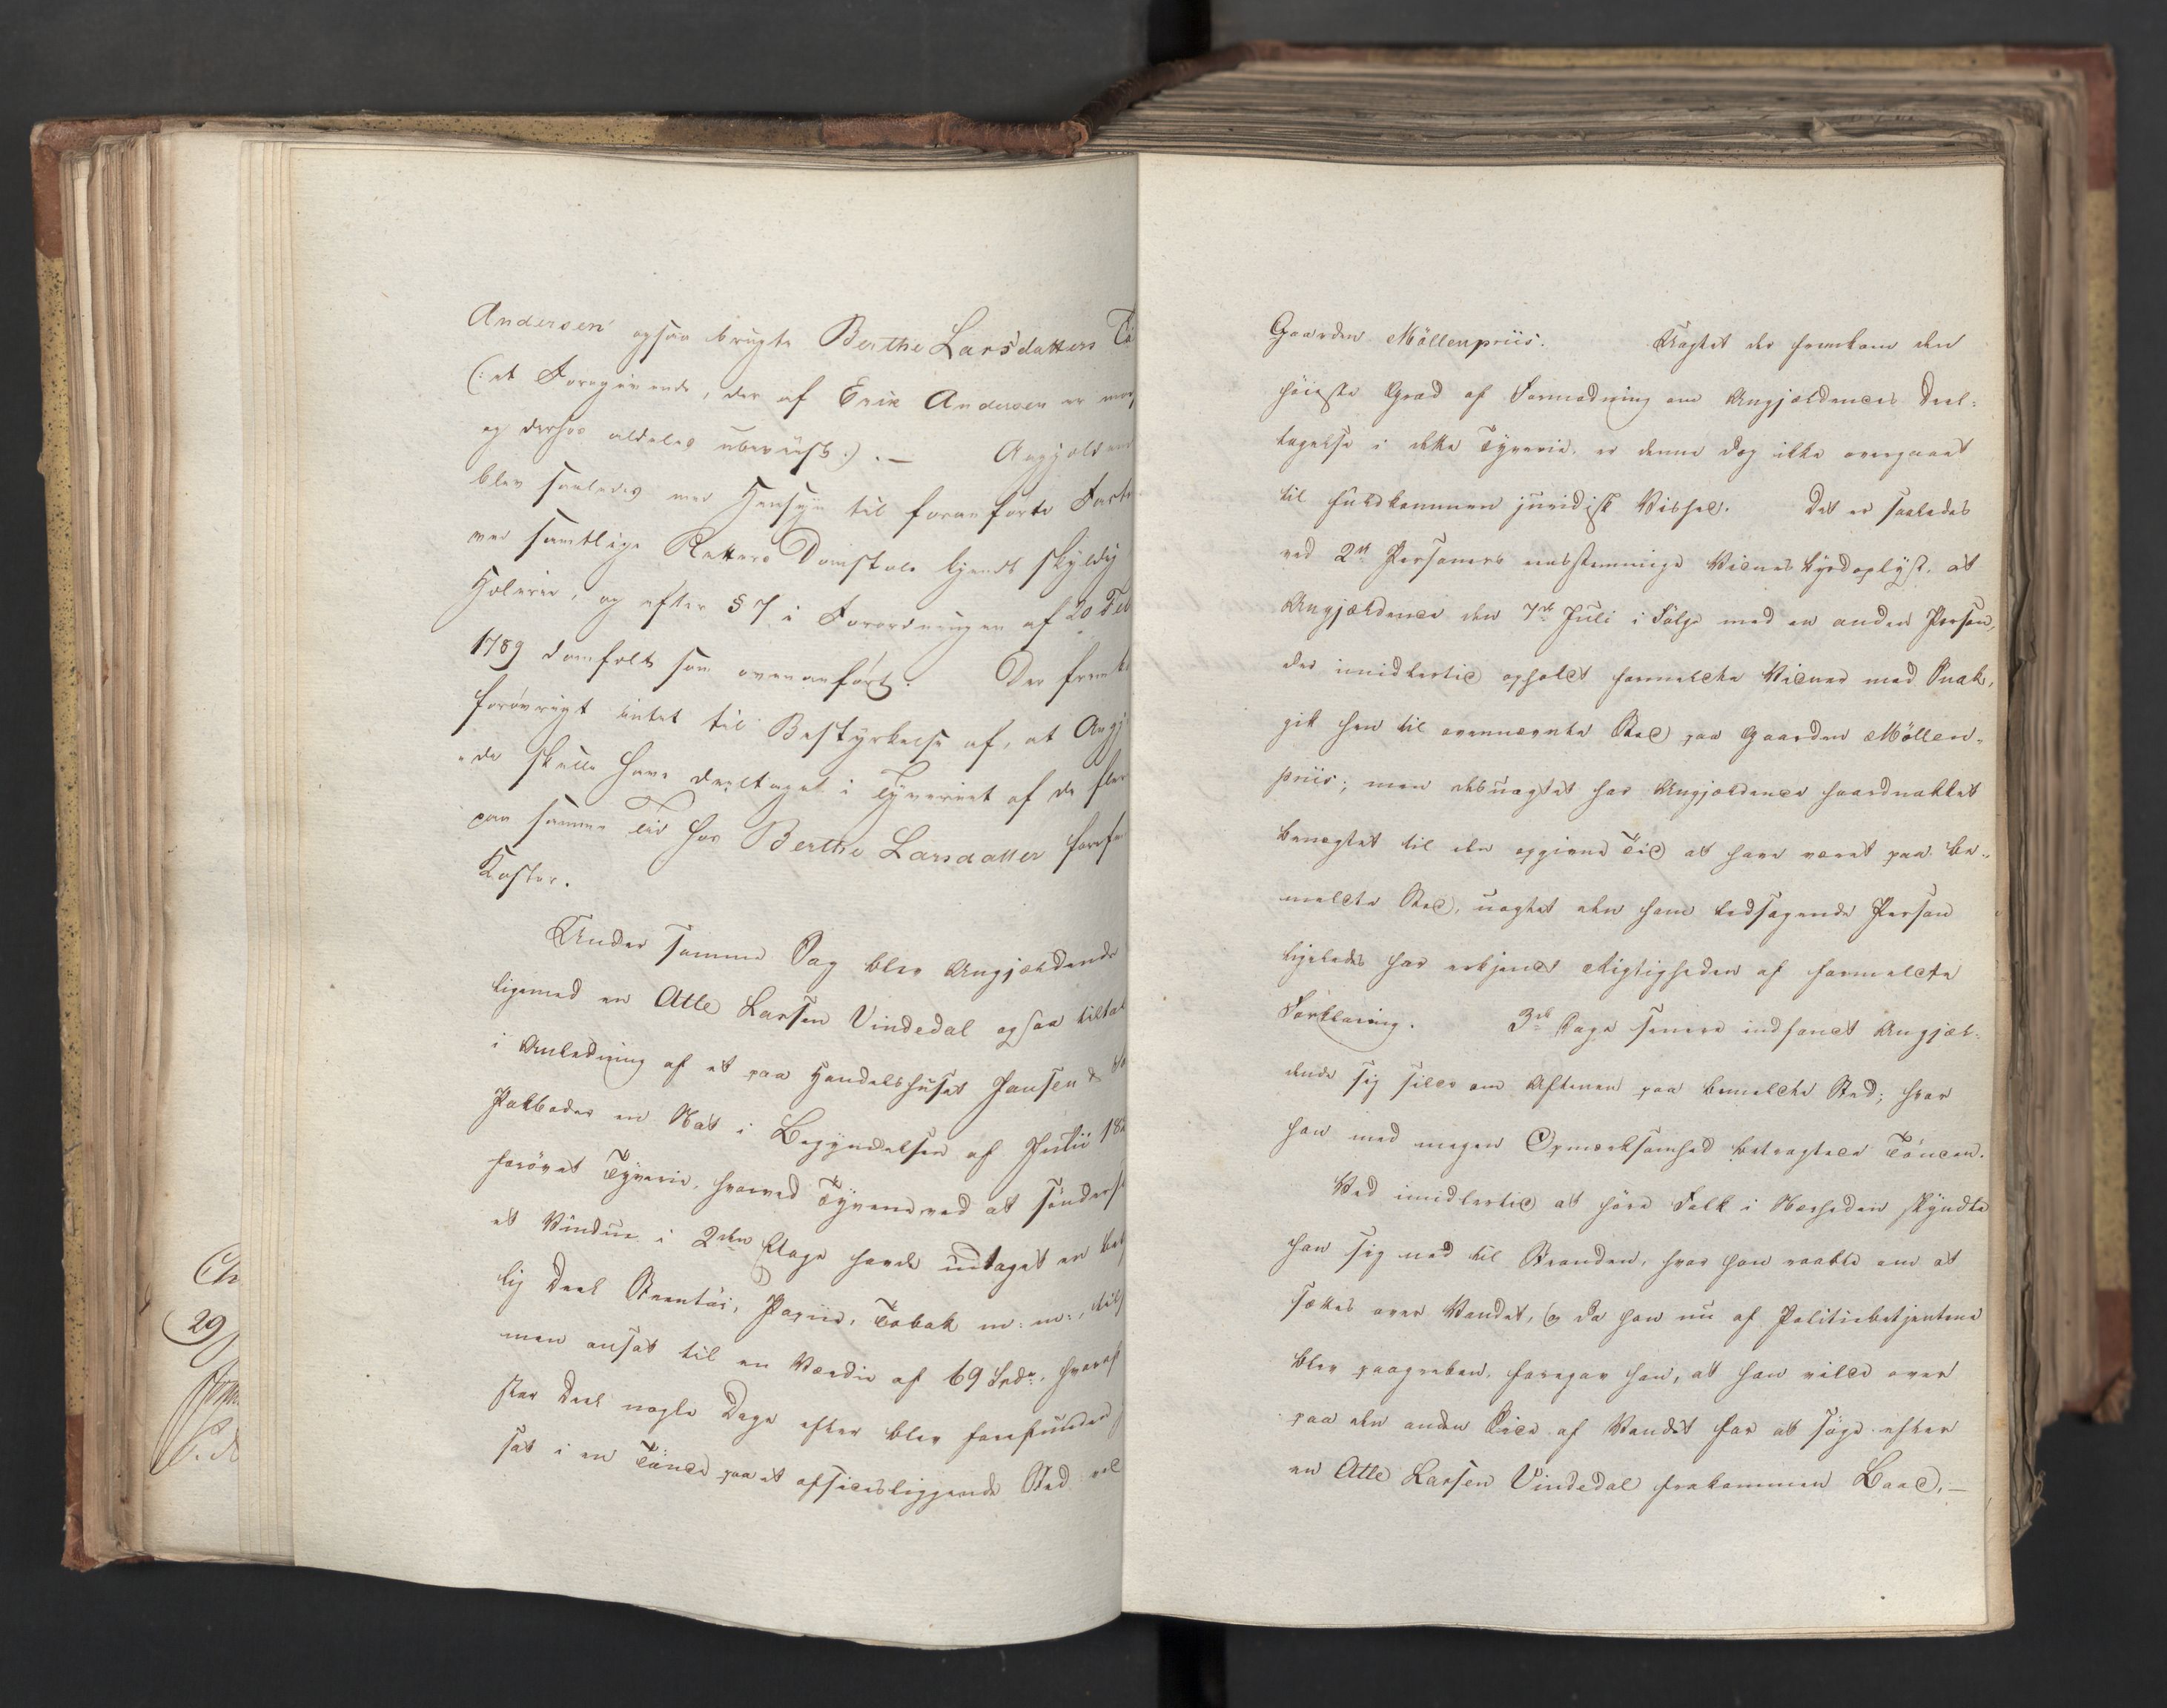 Andersen ogsaa brugte Berthe Larsdatters Tö
(: et Foregivende, der af Erik Andersen er mod
og derhos aldeles ubeviist :). — Angjeldend
blev saaledes med Hensyn til foranførte Facta
ved samtlige Retters Domstole kjendt skyldig
Heleri, og efter § 7 i Forordningen af 20 Feb
1789 domfeldt som ovenanført. Der fremk
forøvrigt intet til Bestyrkelse af, at Angj
de skulle have deeltaget i Tyveriet af de fler
paa samme Tid hos Berthe Larsdatter forefu
Koster.
Under samme Sag blev Angjældende
ligemed en Atle Larsen Vindedal ogsaa tiltal
i Anledning af et paa Handelshuset Jansen &
Pakboder en Nat i Begyndelsen af Julii 18
forövet Tyverie, hvorved Tyvene ved at sönders
et Vindue i 2den Etage havde udtaget en bet
lig Deel Steentöi, Papiir, Tobak m: m:, til
men ansat til en Værdie af 69 Spd., hvoraf
ster Deel nogle Dage efter blev forefunden
sat i en Tönde paa et afsidesliggende Sted ved
Gaarden Möllenpriis. Uagtet der fremkom den
höieste Grad af Formodning om Angjældendes Deel-
tagelse i dette Tyverie, er denne dog ikke overgaaet
til fuldkommen juridisk Vished. Det er saaledes
ved 2de Personers eenstemmige Vidnesbyrd oplyst, at
Angjældende den 7de Juli i Fölge med en anden Person,
der imidlertid opholdt formeldte Vidner med Snak,
gik hen til ovennævnte Sted paa Gaarden Möllen-
priis; men desuagtet har Angjældende haardnakket
benegtet til den opgivne Tid at have været paa be-
meldte Sted, uagtet den ham ledsagende Person
ligeledes har erkjendt Rigtigheden af formeldte
Forklaring. 3de Dage senere indfandt Angjæl-
dende sig silde om Aftenen paa bemeldte Sted; hvor
han med megen Opmærksomhed betragtede Tönden.
Ved imidlertid at höre Folk i Nærheden skyndte
han sig ned til Stranden, hvor han raabte om at
sættes over Vandet, og da han nu af Politiebetjentene
blev paagreben, foregav han, at han vilde over
paa den anden Side af Vandet for at söge efter
en Atle Larsen Vindedal frakommen Baad. —
Ch
29